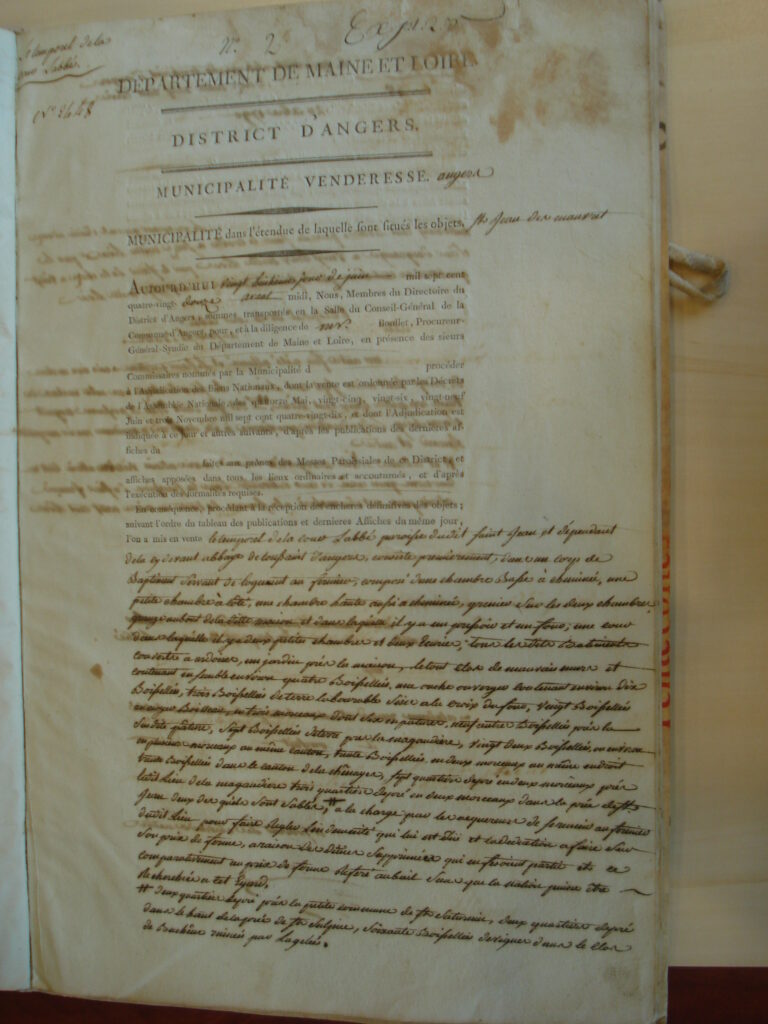 Le temporel de la
cour Labbé.
N° 2
Nos 2648
DÉPARTEMENT DE MAINE ET LOIRE.
DISTRICT D'ANGERS.
MUNICIPALITÉ VENDERESSE. angers
MUNICIPALITÉ dans l'étendue de laquelle sont situés les objets. St Jean des mauvret
AUJOURD'HUI vingt huitieme jour de juin mil sept cent
quatre-vingt- douze avant midi, Nous, Membres du Directoire du
District d'Angers, sommes transportés en la Salle du Conseil-Général de la
Commune d'Angers, pour, et à la diligence de mr. Boullet, Procureur-
Général-Syndic du Département de Maine et Loire, en présence des sieurs
Commissaires nommés par la Municipalité d procéder
à l'Adjudication des Biens Nationaux, dont la vente est ordonnée par les Décrets
de l'Assemblée Nationale, des quatorze Mai, vingt-cinq, vingt-six, vingt-neuf
Juin et trois Novembre mil sept cent quatre-vingt-dix, et dont l'Adjudication est
indiquée à ce jour et autres suivants, d'après les publications des dernieres af-
fiches du
faites aux prônes des Messes Paroissiales de ce District, et
affiches apposées dans tous les lieux ordinaires et accoutumés, et d'après
l'exécution des formalités requises.
En conséquence, procédant à la réception des encheres définitives des objets;
suivant l'ordre du tableau des publications et dernieres Affiches du même jour,
l'on a mis en vente le temporel de la cour Labbé paroisse dudit saint Jean et dépendant
de la cy devant abbaye de toussaint d'angers, consiste premierement, dans un corps de
Batiment servant de logement au fermier, composé d'une chambre Basse à cheminée, une
petite chambre à côté, une chambre haute aussi à cheminée, grenier sur les deux chambres,
maison et dans laquelle il y a un pressoir et un four; une cour
dans laquelle il y a deux petites chambre et deux Ecurie; tous lesdits Batiments
couverts en ardoise, un jardin près la maison, le tout clos de mauvais murs et
contenant ensemble environ quatre Boisselées, une ouche ou verger contenant environ dix
Boisselées, trois Boisselées de terre labourable sise a la croix du four, vingt Boisselées
en trois morceaux dont six en pature, neuf autre Boisselées près la
susdite pature, sept Boisselées de terre près la magaudiere, vingt deux Boisselées, ou environ
en plusieurs morceaux au même canton, trente Boisselées en deux morceaux au même endroit
trente Boisselées dans le canton de la chênaye, sept quartiers de pré en deux morceaux près
ledit Lieu de la magaudiere trois quartiers de pré en deux morceaux dans la prée de St
Jean deux des quels sont sablés, # a la charge par les acquereur de se reunir au fermier
dudit Lieu pour faire Regler L'indemnité qui lui est due et la deduction a faire sur
son prix de ferme, a raison des Dîmes supprimées qui en fesoient partie et ce
comparativement au prix de ferme Referé au bail sans que la nation puisse être
Recherchée a cet Egard.
# deux quartiers de pré près la petite commune de St Saturnin, deux quartiers de pré
dans le haut de la prée de St Sulpice, soixante Boisselées de vignes dans le clos
de ruinées par la gelée.